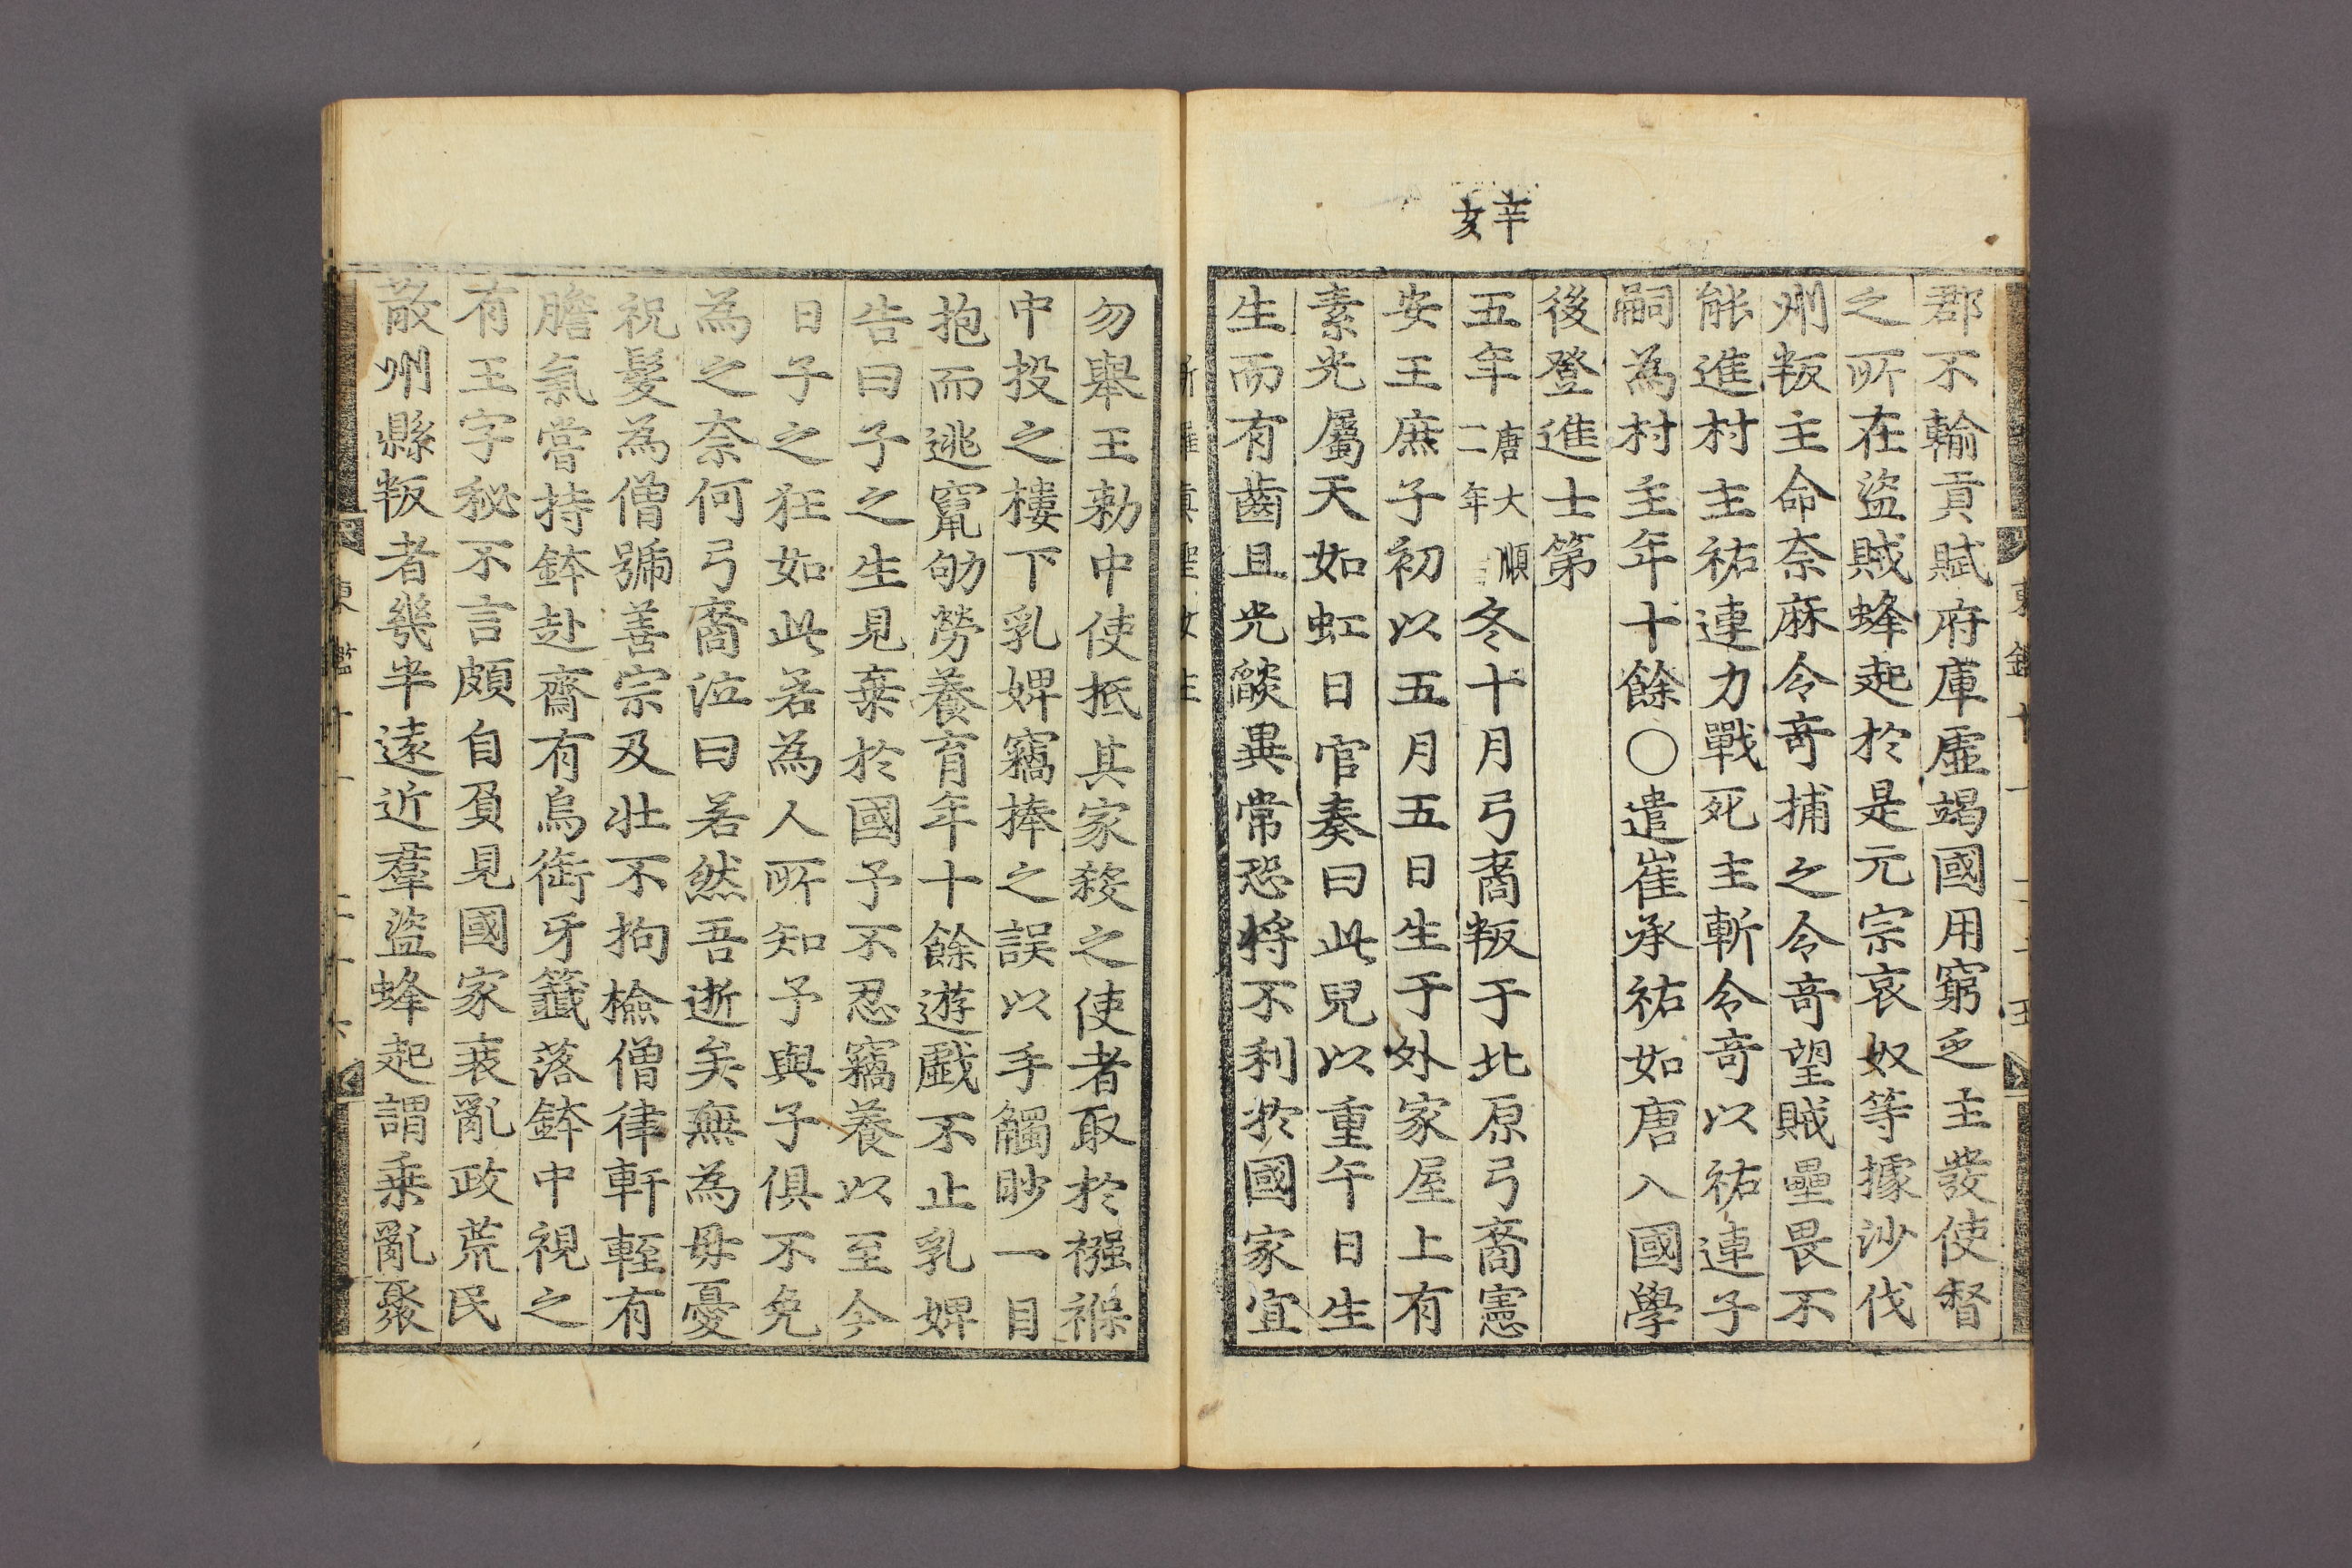 辛亥
郡不輸貢賦府庫虛竭國用窮乏主發使督
之所在盜賊蜂起於是元宗哀奴等據沙伐
州叛主命奈麻令奇捕之令奇望賊壘畏不
能進村主祐連力戰死主斬令奇以祐連子
嗣為村主年十餘○遣崔承祐如唐入國學
後登進士第
五年唐大順二年冬十月弓裔叛于北原弓裔憲
安王庶子初以五月五日生于外家屋上有
素光屬天如虹日官奏曰此兒以重午日生
生而有齒且光燄異常恐將不利於國家宜
勿舉王勑中使抵其家殺之使者取於襁褓
中投之樓下乳婢竊捧之誤以手觸眇一目
抱而逃竄劬勞養育年十餘遊戲不止乳婢
告曰子之生見棄於國予不忍竊養以至今
日子之狂如此若為人所知予與子俱不免
為之奈何弓裔泣曰若然吾逝矣無為毋憂
祝髮為僧號善宗及壯不拘檢僧律軒輊有
膽氣嘗持鉢赴齋有烏銜牙籤落鉢中視之
有王字秘不言頗自負見國家衰亂政荒民
散州縣叛者幾半遠近羣盜蜂起謂乗亂聚